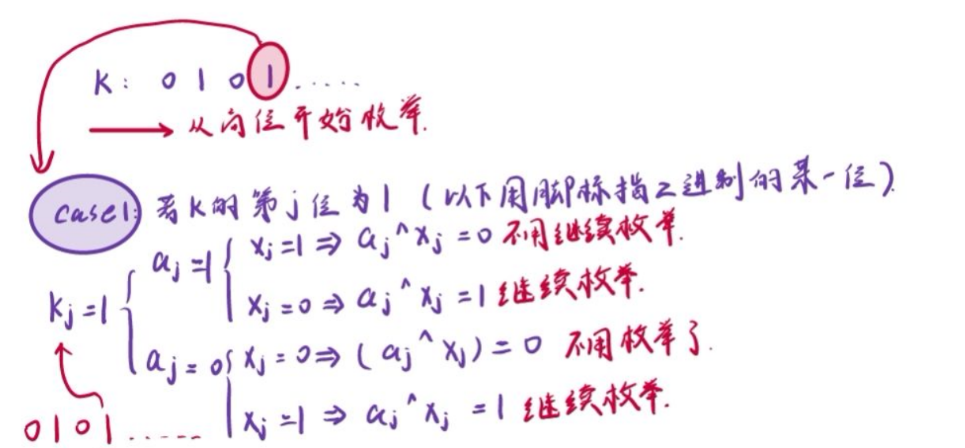 K: 0 1 0 1 .....
从高位开始枚举.
case1: 若K的第j位为1 (以下用脚标指2进制的某一位).
aj=1 { xj=1 ⇒ aj^xj=0 不用继续枚举.
Kj=1 { xj=0 ⇒ aj^xj=1 继续枚举.
aj=0 { xj=0 ⇒ (aj^xj)=0 不用枚举了.
0101...... xj=1 ⇒ aj^xj=1 继续枚举.